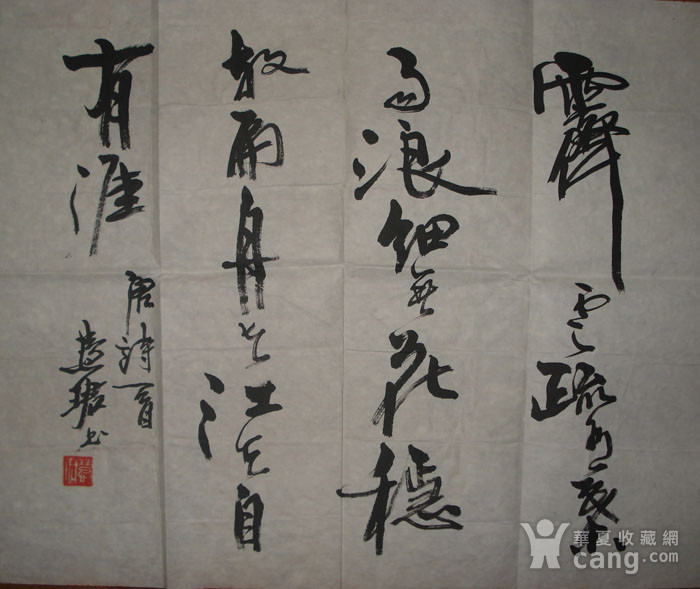 霽雲疏有葉
雨浪細無花穩
放扁舟去江天自
有涯
唐詩一首
慧珺书
華夏收藏網
cang.com